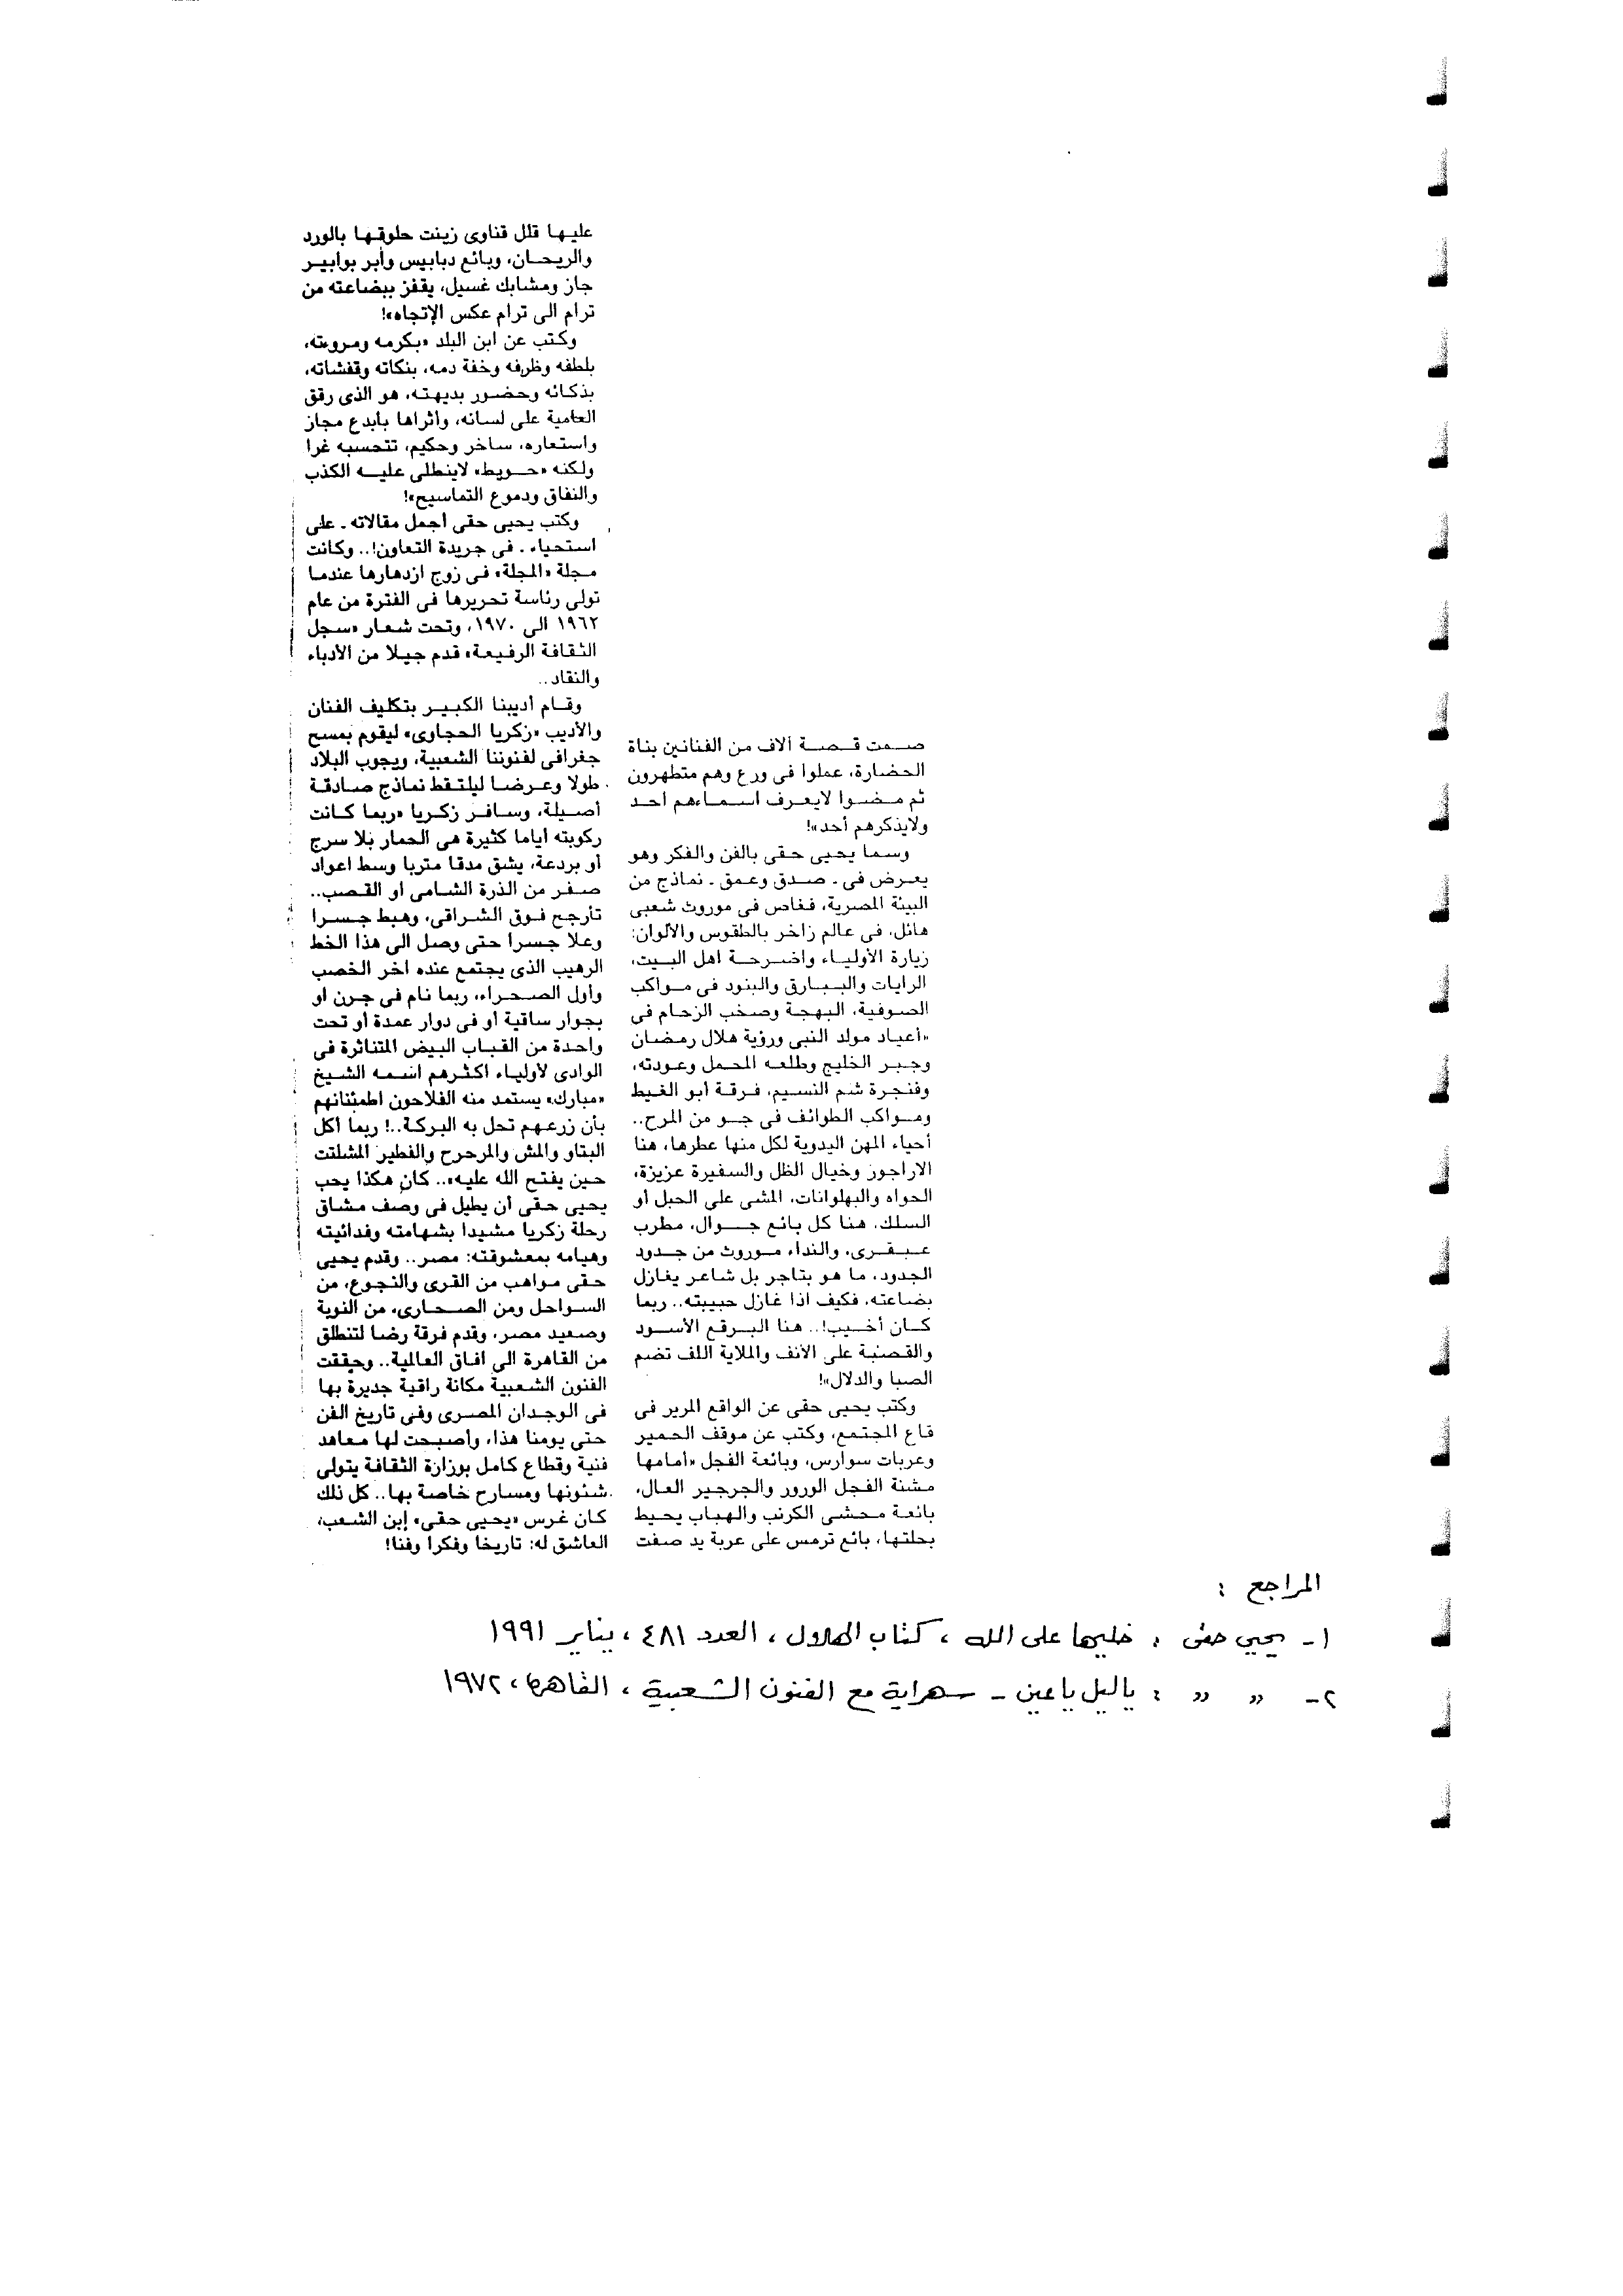 صمت قصة آلاف من الفنانين بناة
الحضارة، عملوا فى ورع وهم متطهرون
ثم مضوا لايعرف اسماءهم أحد
ولايذكرهم أحد»!
وسما يحيى حقى بالفن والفكر وهو
يعرض فى ـ صدق وعمق ـ نماذج من
البيئة المصرية، فغاص فى موروث شعبى
هائل، فى عالم زاخر بالطقوس والألوان:
زيارة الأولياء واضرحة اهل البيت،
الرايات والبيارق والبنود فى مواكب
الصوفية، البهجة وصخب الزحام فى
«أعياد مولد النبى ورؤية هلال رمضان
وجبر الخليج وطلعه المحمل وعودته،
وفنجرة شم النسيم، فرقة أبو الغيط
ومواكب الطوائف فى جو من المرح..
أحياء المهن اليدوية لكل منها عطرها، هنا
الاراجوز وخيال الظل والسفيرة عزيزة،
الحواه والبهلوانات، المشى على الحبل أو
السلك، هنا كل بائع جوال، مطرب
عبقرى، والنداء موروث من جدود
الجدود، ما هو بتاجر بل شاعر يغازل
بضاعته، فكيف اذا غازل حبيبته.. ربما
كان أخيب!.. هنا البرقع الأسود
والقصبة على الأنف والملاية اللف تضم
الصبا والدلال»!
وكتب يحيى حقى عن الواقع المرير فى
قاع المجتمع، وكتب عن موقف الحمير
وعربات سوارس، وبائعة الفجل «أمامها
مشنة الفجل الورور والجرجير العال،
بائعة محشى الكرنب والهباب يحيط
بحلتها، بائع ترمس على عربة يد صفت
عليها قلل قناوى زينت حلوقها بالورد
والريحان، وبائع دبابيس وأبر بوابير
جاز ومشابك غسيل، يقفز ببضاعته من
ترام الى ترام عكس الإتجاه»!
وكتب عن ابن البلد «بكرمه ومروءته،
بلطفه وظرفه وخفة دمه، بنكاته وقفشاته،
بذكائه وحضور بديهته، هو الذى رقق
العامية على لسانه، وأثراها بأبدع مجاز
واستعاره، ساخر وحكيم، تتحسبه غرا
ولكنه «حويط» لاينطلى عليه الكذب
والنفاق ودموع التماسيح»!
وكتب يحيى حقى أجمل مقالاته ـ على
استحياء ـ فى جريدة التعاون!.. وكانت
مجلة «المجلة» فى زوج ازدهارها عندما
تولى رئاسة تحريرها فى الفترة من عام
١٩٦٢ الى ١٩٧٠، وتحت شعار «سجل
الثقافة الرفيعة» قدم جيلا من الأدباء
والنقاد..
وقام أديبنا الكبير بتكليف الفنان
والأديب «زكريا الحجاوى» ليقوم بمسح
جغرافى لفنوننا الشعبية، ويجوب البلاد
طولا وعرضا ليلتقط نماذج صادقة
أصيلة، وسافر زكريا «ربما كانت
ركوبته أياما كثيرة هى الحمار بلا سرج
أو بردعة، يشق مدقا متربا وسط اعواد
صفر من الذرة الشامى أو القصب..
تأرجح فوق الشراقى، وهبط جسرا
وعلا جسرا حتى وصل الى هذا الخط
الرهيب الذى يجتمع عنده اخر الخصب
وأول الصحراء، ربما نام فى جرن أو
بجوار ساقية أو فى دوار عمدة أو تحت
واحدة من القباب البيض المتناثرة فى
الوادى لأولياء اكثرهم اسمه الشيخ
«مبارك» يستمد منه الفلاحون اطمئنانهم
بأن زرعهم تحل به البركة..! ربما أكل
البتاو والمش والمرحرح والفطير المشلتت
حين يفتح الله عليه».. كان هكذا يحب
يحيى حقى أن يطيل فى وصف مشاق
رحلة زكريا مشيدا بشهامته وفدائيته
وهيامه بمعشوقته: مصر.. وقدم يحيى
حقى مواهب من القرى والنجوع، من
السواحل ومن الصحارى، من النوبة
وصعيد مصر، وقدم فرقة رضا لتنطلق
من القاهرة الى افاق العالمية.. وحققت
الفنون الشعبية مكانة راقية جديرة بها
فى الوجدان المصرى وفى تاريخ الفن
حتى يومنا هذا، وأصبحت لها معاهد
فنية وقطاع كامل بوزارة الثقافة يتولى
شئونها ومسارح خاصة بها.. كل ذلك
كان غرس «يحيى حقى» إبن الشعب،
العاشق له: تاريخا وفكرا وفنا!
المراجع :
١ - يحيى حقى : خليها على الله ، كتاب الهلال ، العدد ٤٨١ ، يناير ١٩٩١
٢ - " " : ياليل ياعين - سهراية مع الفنون الشعبية ، القاهرة ، ١٩٧٢